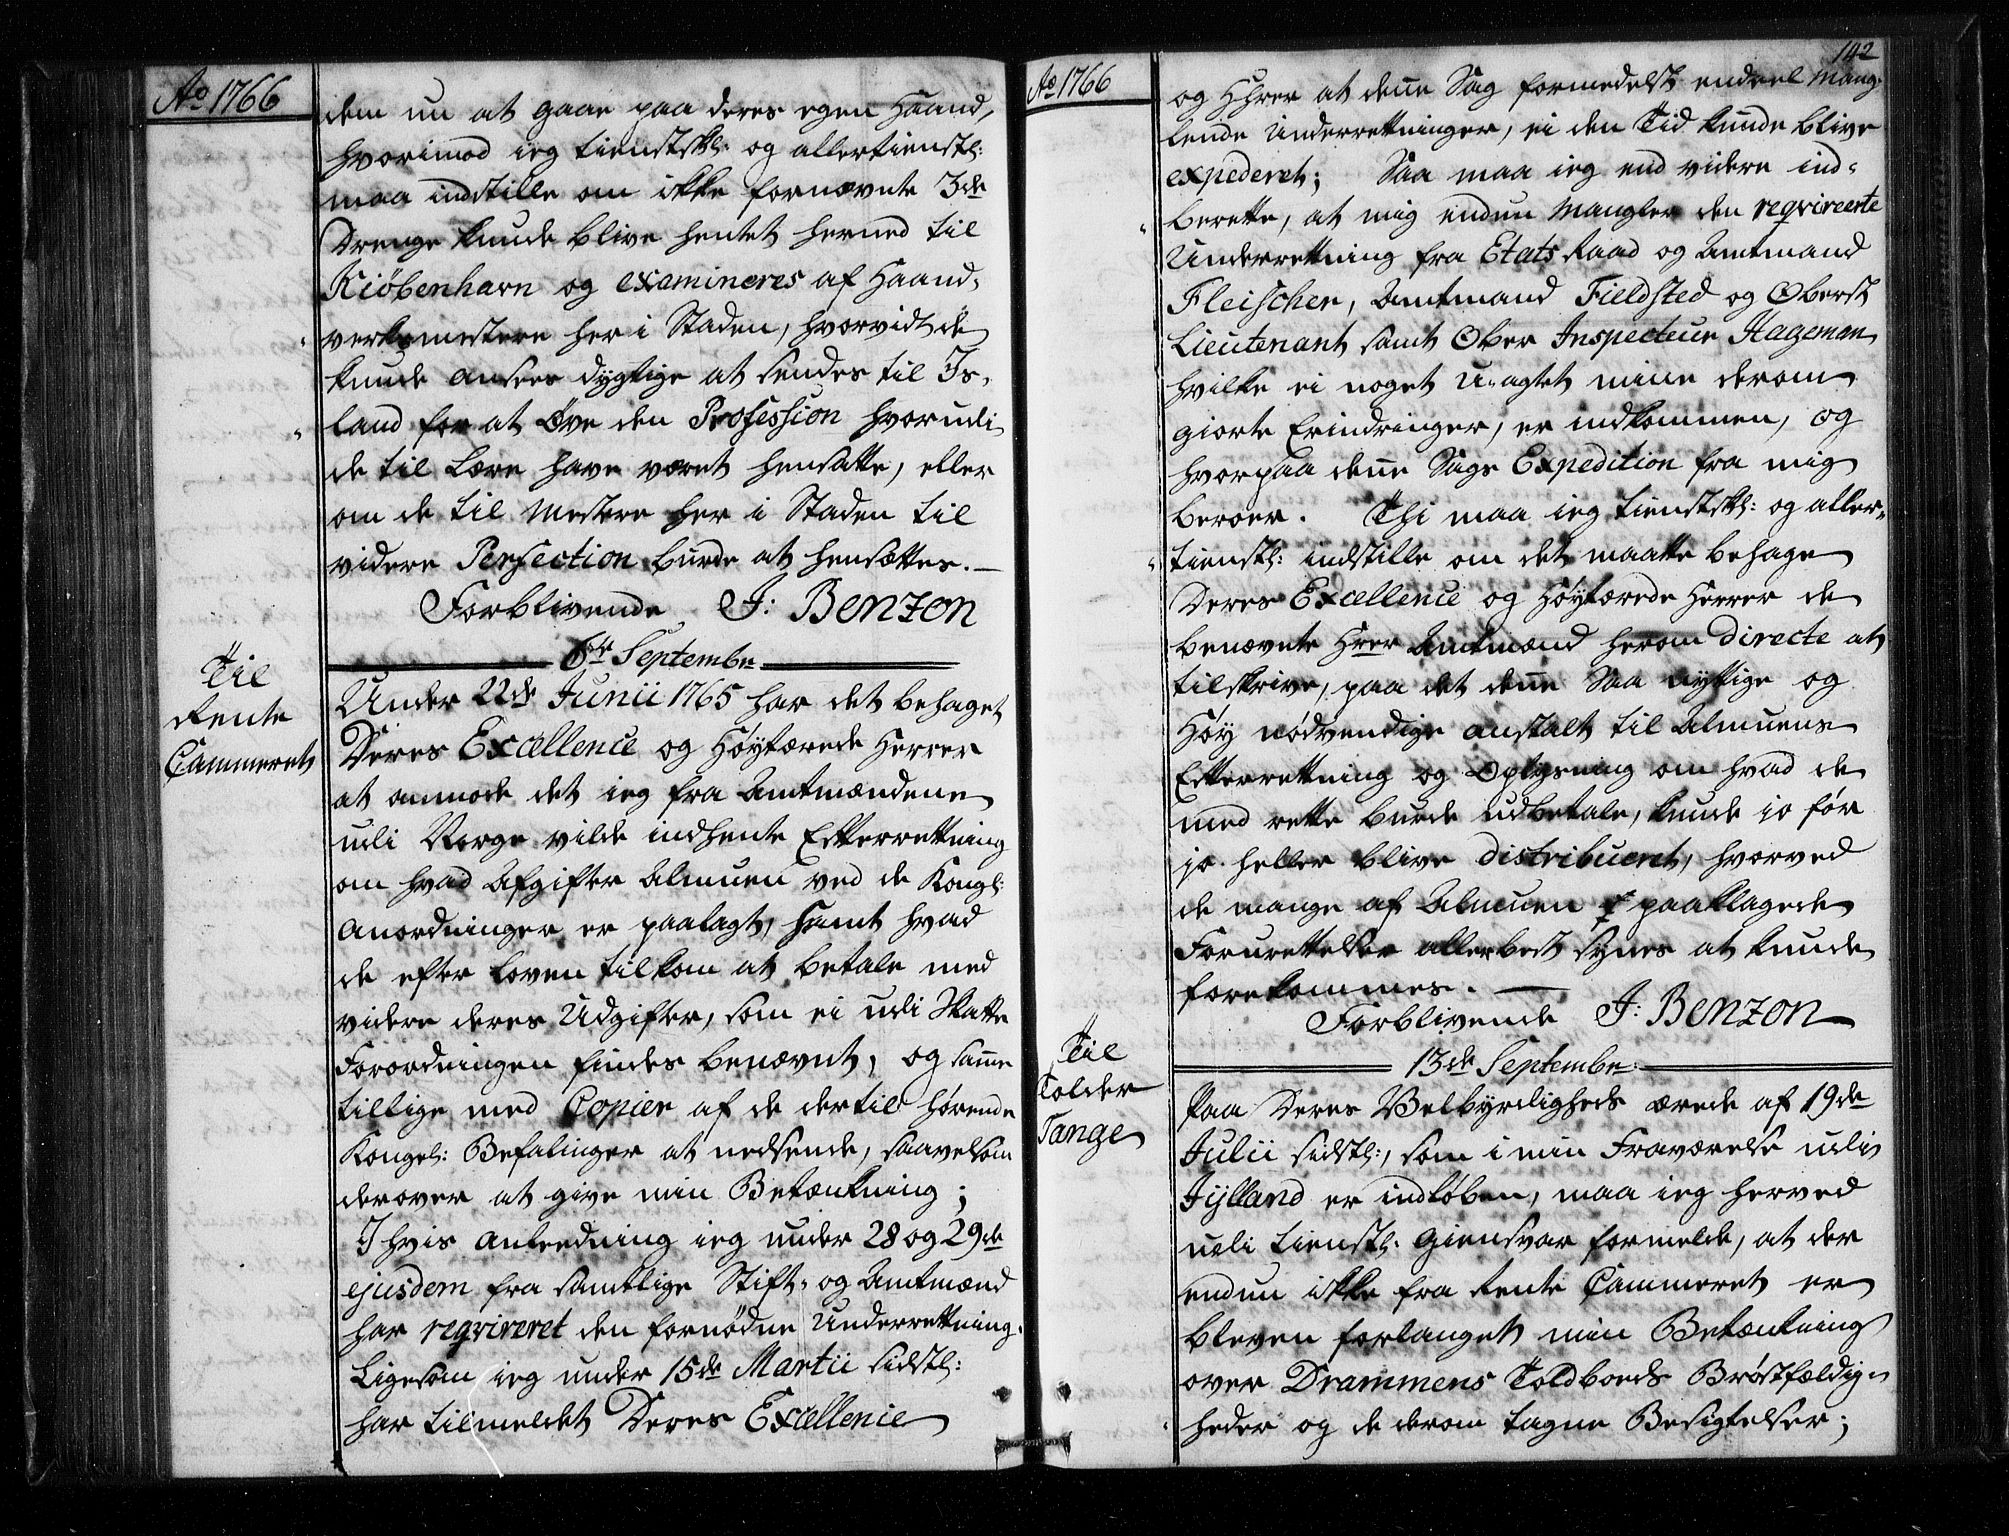 Ao 1766
dem nu at gaae paa deres egen Haand,
hvorimod ieg tienstskl: og allertienstl:
maa indstille om ikke fornævnte 3de
Drenge kunde blive hentet herned til
Kiöbenhavn og examineres af Haand-
verksmestere her i Staden, hvorvidt de
kunde ansees dygtige at sendes til Is-
land for at Öve den Profession hvorudi
de til Lære have været hensatte, eller
om de til Mestere her i Staden til
videre Perfection burde at hensættes.
Forblivende J: Benzon
6te Septembr
Til
Rente
Cammeret
Under 22de Junii 1765 har det behaget
Deres Excellence og Höytærede Herrer
at anmode det ieg fra Amtmændene
udi Norge vilde indhente Efterrettning
om hvad Afgifter Almuen ved de Kongl:
Anordninger er paalagt, samt hvad
de efter Loven tilkom at betale med
videre deres Udgifter, som ei udi Skatte
Forordningen findes benævnt, og samme
tillige med Copier af de dertil hörende
Kongel: Befalinger at nedsende, saavelsom
derover at give min Betænkning;
I hvis Anleedning ieg under 28 og 29de
ejusdem fra samtlige Stift- og Amtmænd
har reqvireret den fornödne Underrettning.
Ligesom ieg under 15de Martii sidstl:
har tilmeldet Deres Excellence
142
Ao 1766
og HHrer at denne Sag formedelst endeel Mang-
lende Underrettninger, ei den Tid kunde blive
expederet; Saa maa ieg end videre ind-
berette, at mig endnu Mangler den reqvireerte
Underrettning fra Etats Raad og Amtmand
Fleischer, Amtmand Fieldsted og Oberst
Lieutenant samt Ober Inspecteur Hageman
hvilke ei noget U-agtet mine derom
giorte Erindringer, er indkommen, og
hvorpaa denne Sags Expedition fra mig
beroer. Thi maa ieg tienstskl: og aller-
tienstl: indstille om det maatte behage
Deres Excellence og Höytærede Herrer de
benævnte Hrer Amtmænd herom directe at
tilskrive, paa det denne saa nyttige og
Höy nödvendige anstalt til Almuens
Efterrettning og Oplysning om hvad de
med rette burde udbetale, kunde jo för
jo heller blive distribueret, hvorved
de mange af Almuen paaklagede
Forurettelser allerbest synes at kunde
forekommes.
Forblivende J: Benzon
13de Septembr:
Til
Tolder
Tange
Paa Deres Velbyrdigheds ærede af 19de
Julii sidstl:, som i min Fraværelse udi
Jylland er indlöben, maa ieg herved
udi tienstl: Giensvar formelde, at der
endnu ikke fra Rente Cammeret er
bleven forlanget min Betænkning
over Drammens Toldboeds Bröstfældig-
heder og de derom tagne Besigtelser;